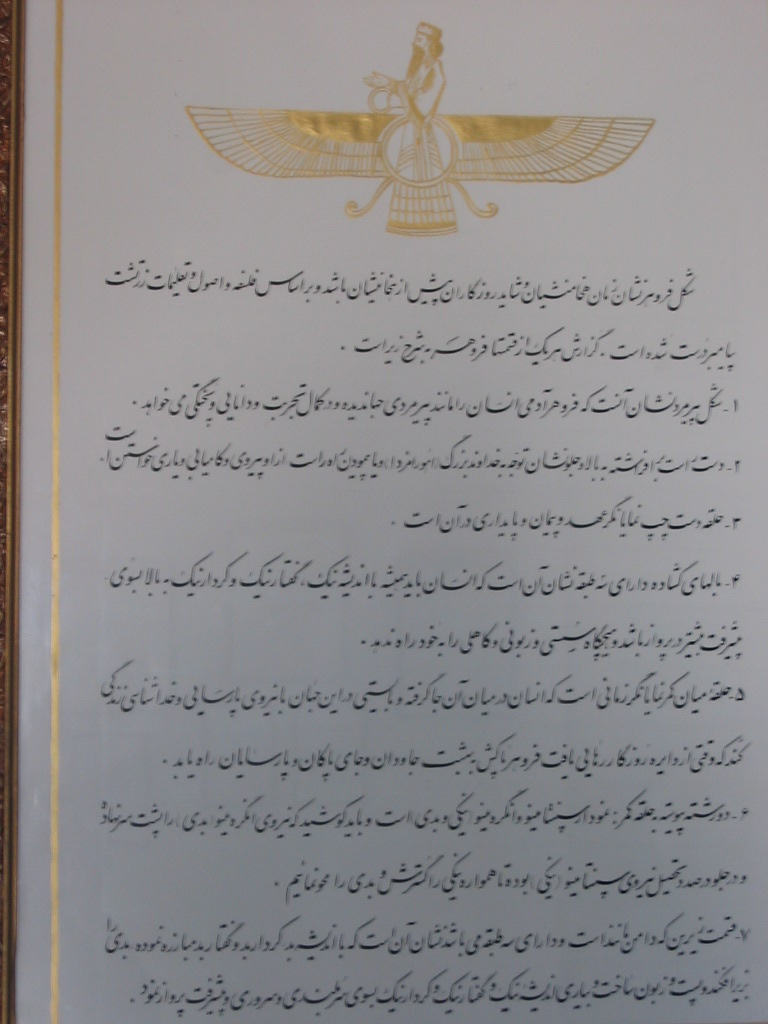 شکل فروهر نشان زمان هخامنشیان و شاید روزگاران پیش از هخامنشیان باشد و بر اساس فلسفه و اصول و تعلیمات زرتشت
پیامبر درست شده است . گزارش هر یک از قسمتها فروهر به شرح زیر است .
۱- شکل پیرمرد نشان آنست که فروهر آدمی انسان را مانند پیرمردی جهاندیده و در کمال تجربت و دانایی و پختگی می خواهد .
۲- دست راست برافرشته به بالا و جلو نشان توجه به خداوند بزرگ (اهورامزدا) و پیمودن راه راست از او پیروی و کامیابی و یاری خواستن است .
۳- حلقه دست چپ نمایانگر عهد و پیمان و پایداری در آن است .
۴- بالهای گشاده دارای سه طبقه نشان آن است که انسان باید همیشه با اندیشه نیک ، گفتار نیک و کردار نیک به بالا بسوی
پیشرفت بیشتر در پرواز باشد و هیچگاه سستی و زبونی و کاهلی را به خود راه ندهد .
۵- حلقه میان کمر نمایانگر زمانی است که انسان در میان آن جا گرفته و بایستی در این جهان با نیروی پارسایی و خداشناسی زندگی
کند که وقتی از دایره روزگار رهایی یافت فروهر پاکش بهشت جاودان و جای پاکان و پارسایان راه یابد .
۶- دو رشته پیوسته به حلقه کمر : نمودار سپنتا مینو و انگره مینو (نیکی و بدی) است و باید کوشید که نیروی انگره مینو (بدی) را پشت سر نهاد
و در جلو در صدد تحصیل نیروی سپنتا مینو (نیکی) بوده تا همواره نیکی را گسترش و بدی را محو نمائیم .
۷- قسمت زیرین که دامن مانند است و دارای سه طبقه می باشد نشان آن است که با اندیشه بد کردار بد و گفتار بد مبارزه نموده بدی را
بزیر افکند و پست و زبون ساخت و بیاری اندیشه نیک و گفتار نیک و کردار نیک بسوی سربلندی و سروری و پیشرفت پرواز نمود .